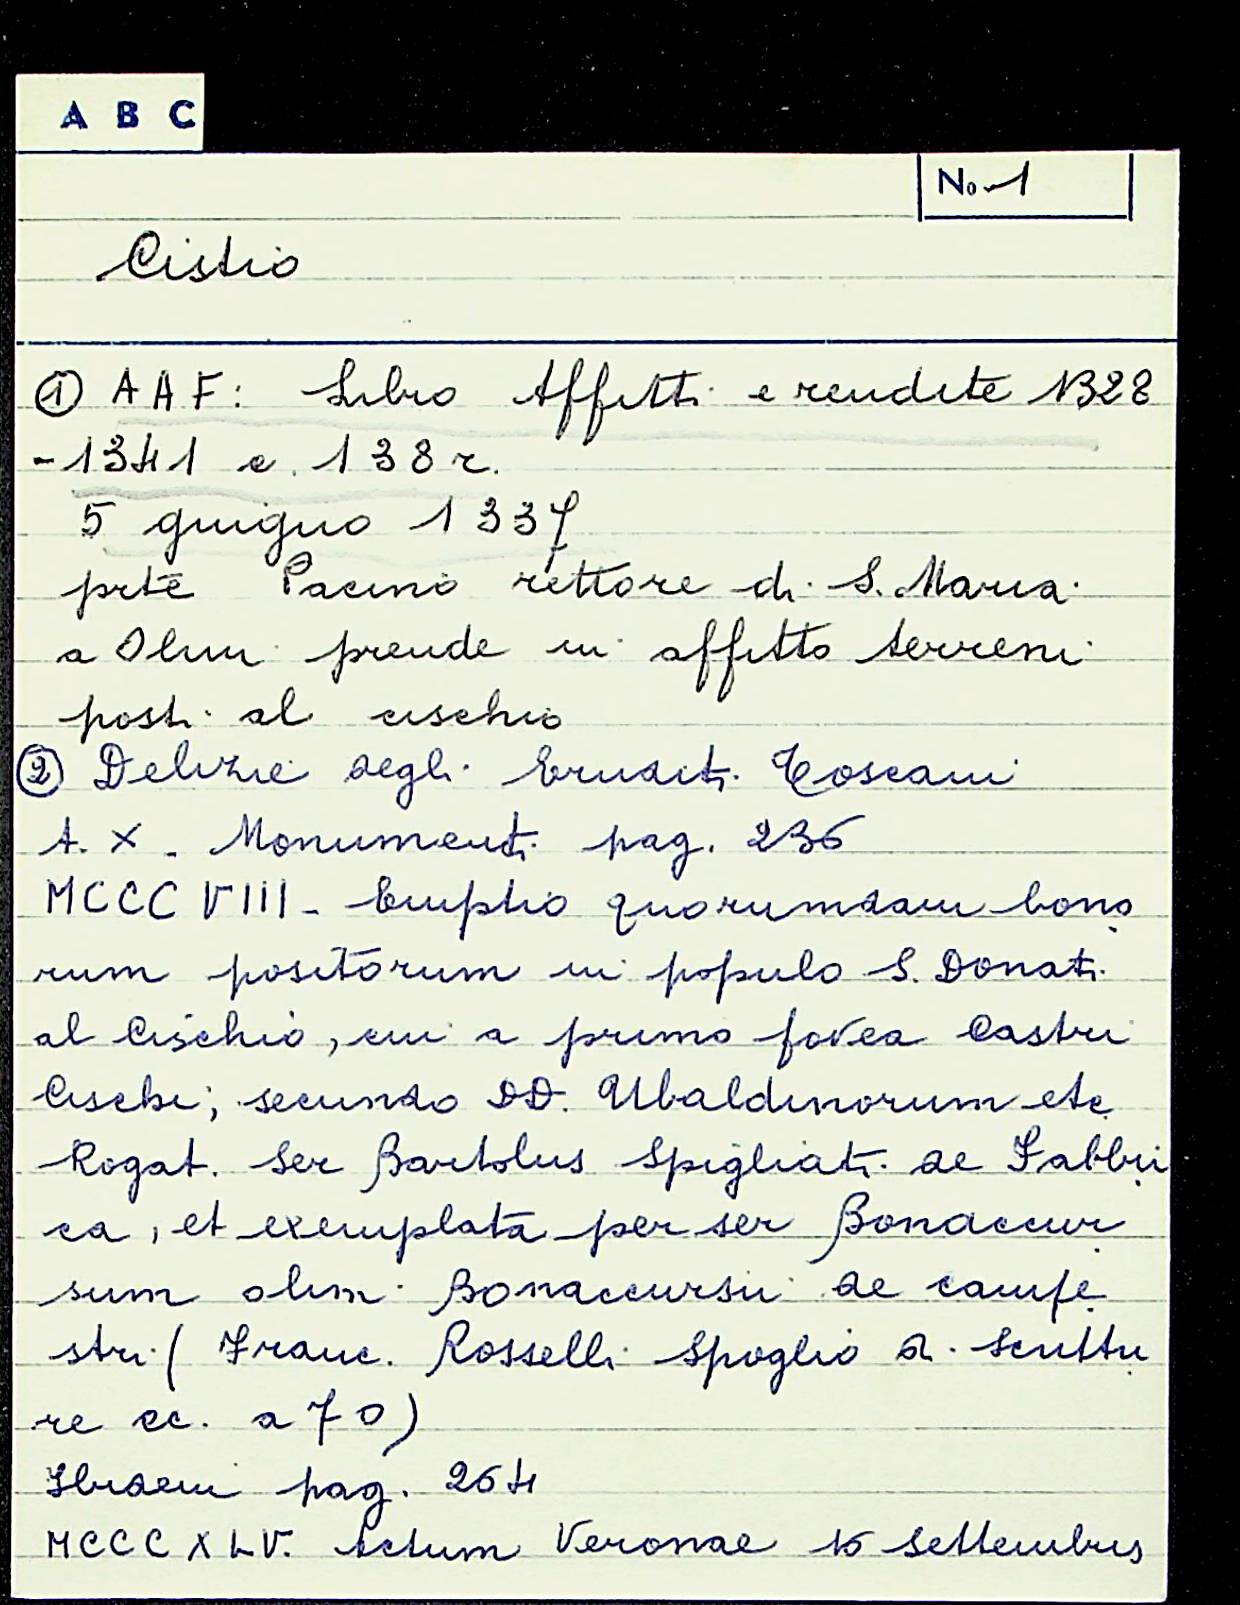 A B C
No 1
Cistio
① AAF: Libro Affitti e rendite 1328
-1341 c. 138 r.
5 giugno 1337
prte Pacino rettore di S. Maria
a Olmi prende in affitto terreni
posti al cischio
② Delizie degli Eruditi Toscani
t. X - Monumenti pag. 236
MCCCVIII - Emptio quorumdam bono
rum positorum in populo S. Donati
al Cischio, cui a primo fovea Castri
Cischi; secundo DD. Ubaldinorum etc
Rogat. Ser Bartolus Spigliati de Fabbri
ca, et exemplata per ser Bonaccur
sum olim Bonaccursii de campe
stri (Franc. Rosselli Spoglio di Scrittu
re ec. a 70)
Ibidem pag. 264
MCCCXLV. Actum Veronae 16 Settembris